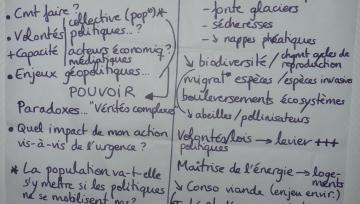 • Cmt faire ?
collective (pop°)*
• Volontés politiques...?
+Capacité acteurs économiq?
médiatiques
• Enjeux géopolitiques...
POUVOIR
Paradoxes..."Vérités complexes
• Quel impact de mon action
vis-à-vis de l'urgence ?
* La population va-t-elle
s'y mettre si les politiques
ne se mobilisent
- fonte glaciers
- sécheresses
→ nappes phréatiques
↘ biodiversité / chgmt cycles de
reproduction
migrat° espèces / espèces invasive
bouleversements écosystèmes
↳ abeilles / pollinisateurs
Volontés/lois → levier +++
politiques
Maîtrise de l'énergie → loge-
ments
↘ Conso viande (enjeu envir.)